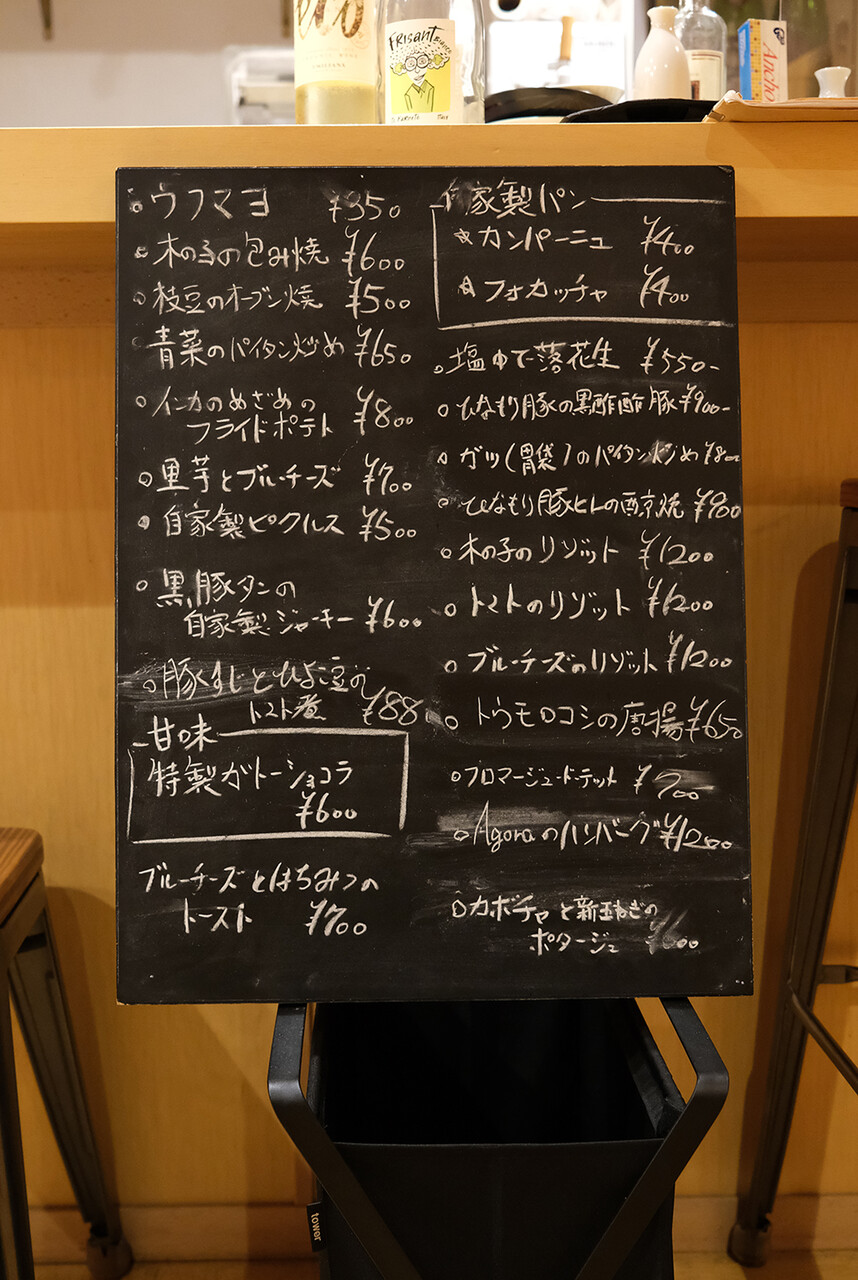 FRISANT BIANCO
Ancho
。ウフマヨ ¥350
。木の子の包み焼 ¥600
。枝豆のオーブン焼 ¥500
青菜のパイタン炒め ¥650
。インカのめざめの
フライドポテト ¥800
。里芋とブルーチーズ ¥700
。自家製ピクルス ¥500
。黒豚タンの
自家製ジャーキー ¥600
。豚すじとひよこ豆の
トマト煮 ¥88
甘味
特製ガトーショコラ
¥600
ブルーチーズとはちみつの
トースト ¥700
自家製パン
☆カンパーニュ ¥400
☆フォカッチャ ¥400
。塩ゆで落花生 ¥550-
。ひなもり豚の黒酢酢豚 ¥900-
。ガツ(胃袋)のパイタン炒め ¥800
。ひなもり豚ヒレの西京焼 ¥900
。木の子のリゾット ¥1200
。トマトのリゾット ¥1200
。ブルーチーズのリゾット ¥1200
。トウモロコシの唐揚 ¥650
。フロマージュ・ド・テット ¥700
。Agoraのハンバーグ ¥1200
。カボチャと新玉ねぎの
ポタージュ ¥600
tower